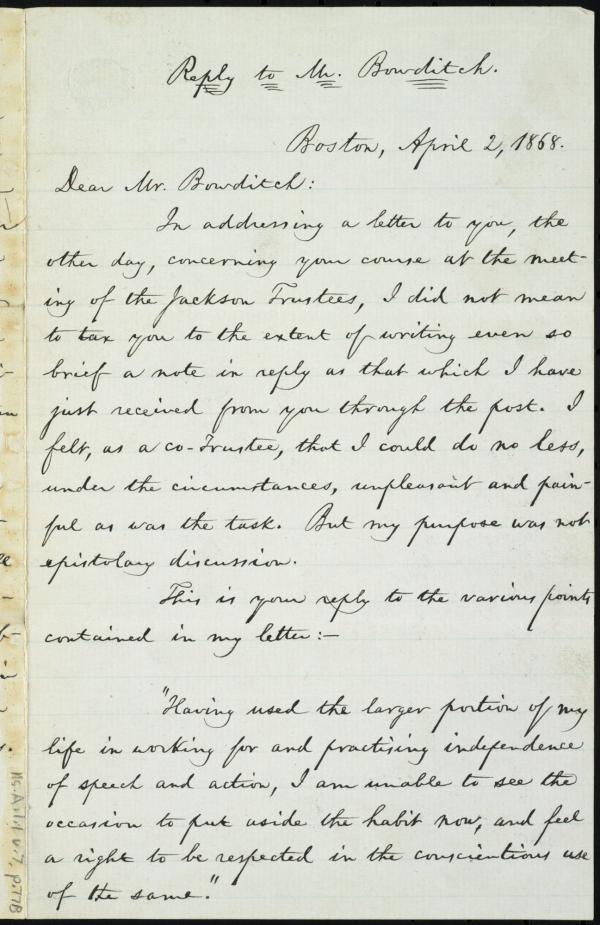 Reply to Mr. Bowditch.
Boston, April 2, 1868.
Dear Mr. Bowditch:
In addressing a letter to you, the
other day, concerning your course at the meet-
ing of the Jackson Trustees, I did not mean
to tax you to the extent of writing even so
brief a note in reply as that which I have
just received from you through the post. I
felt, as a co-Trustee, that I could do no less,
under the circumstances, unpleasant and pain-
ful as was the task. But my purpose was not
epistolary discussion.
This is your reply to the various points
contained in my letter:—
"Having used the larger portion of my
life in working for and practising independence
of speech and action, I am unable to see the
occasion to put aside the habit now, and feel
a right to be respected in the conscientious use
of the same."
Ms.A.1.1 v.7, p.77B